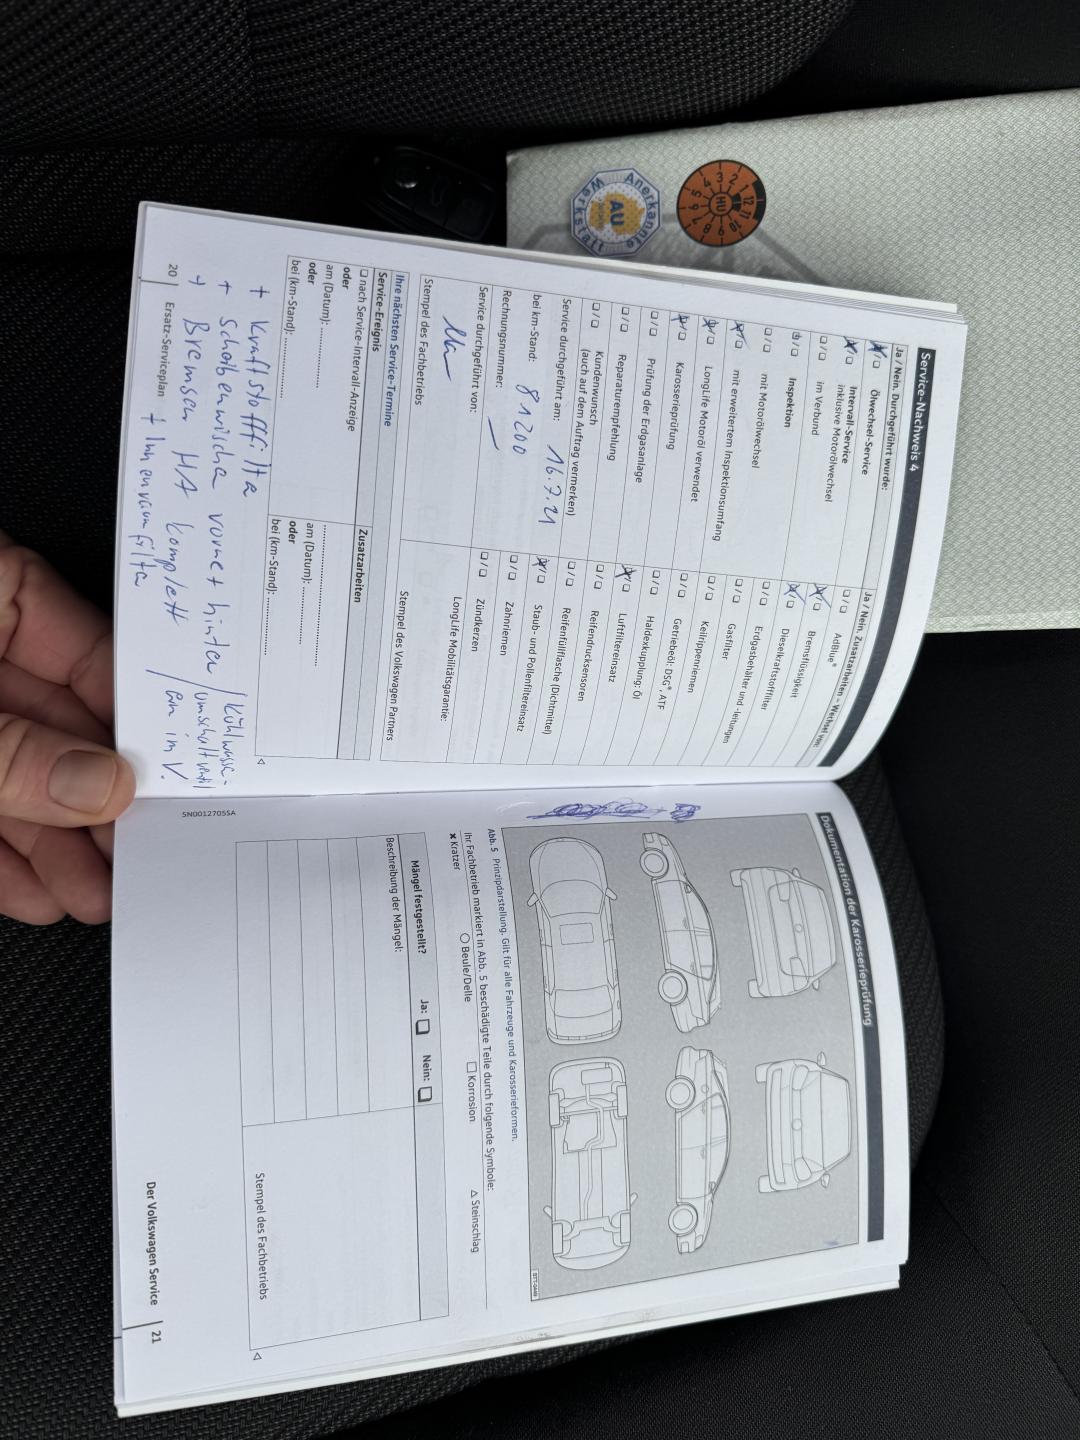 Service-Nachweis 4
Ja / Nein, Durchgeführt wurde:
Ölwechsel-Service
Intervall-Service
inklusive Motorölwechsel
im Verbund
Inspektion
mit Motorölwechsel
mit erweitertem Inspektionsumfang
LongLife Motoröl verwendet
Karosserieprüfung
Prüfung der Erdgasanlage
Reparaturempfehlung
Kundenwunsch
(auch auf dem Auftrag vermerken)
Service durchgeführt am: 16.7.21
bei km-Stand: 81200
Rechnungsnummer: —
Service durchgeführt von:
Stempel des Fachbetriebs
Ja / Nein, Zusatzarbeiten – Wechsel von:
AdBlue®
Bremsflüssigkeit
Dieselkraftstofffilter
Erdgasbehälter und -leitungen
Gasfilter
Keilrippenriemen
Getriebeöl: DSG®, ATF
Haldexkupplung: Öl
Luftfiltereinsatz
Reifendrucksensoren
Reifenfüllflasche (Dichtmittel)
Staub- und Pollenfiltereinsatz
Zahnriemen
Zündkerzen
LongLife Mobilitätsgarantie:
Stempel des Volkswagen Partners
Ihre nächsten Service-Termine
Service-Ereignis
Zusatzarbeiten
nach Service-Intervall-Anzeige
oder
am (Datum):
oder
bei (km-Stand):
am (Datum):
oder
bei (km-Stand):
+ Kraftstofffilter
+ Scheibenwischer vorne + hinten
+ Bremsen HA komplett
+ Innenraumfilter
/ Kühlwasser-
/ umschaltventil
20 | Ersatz-Serviceplan
Dokumentation der Karosserieprüfung
Abb. 5 Prinzipdarstellung. Gilt für alle Fahrzeuge und Karosserieformen.
Ihr Fachbetrieb markiert in Abb. 5 beschädigte Teile durch folgende Symbole:
✖ Kratzer
○ Beule/Delle
□ Korrosion
△ Steinschlag
Mängel festgestellt?
Ja: □
Nein: □
Beschreibung der Mängel:
Stempel des Fachbetriebs
5N0012705SA
Der Volkswagen Service | 21
Anerkannte
AU
Werkstatt
HU
12 1 2 3 4 5 6 7 8 9 10 11